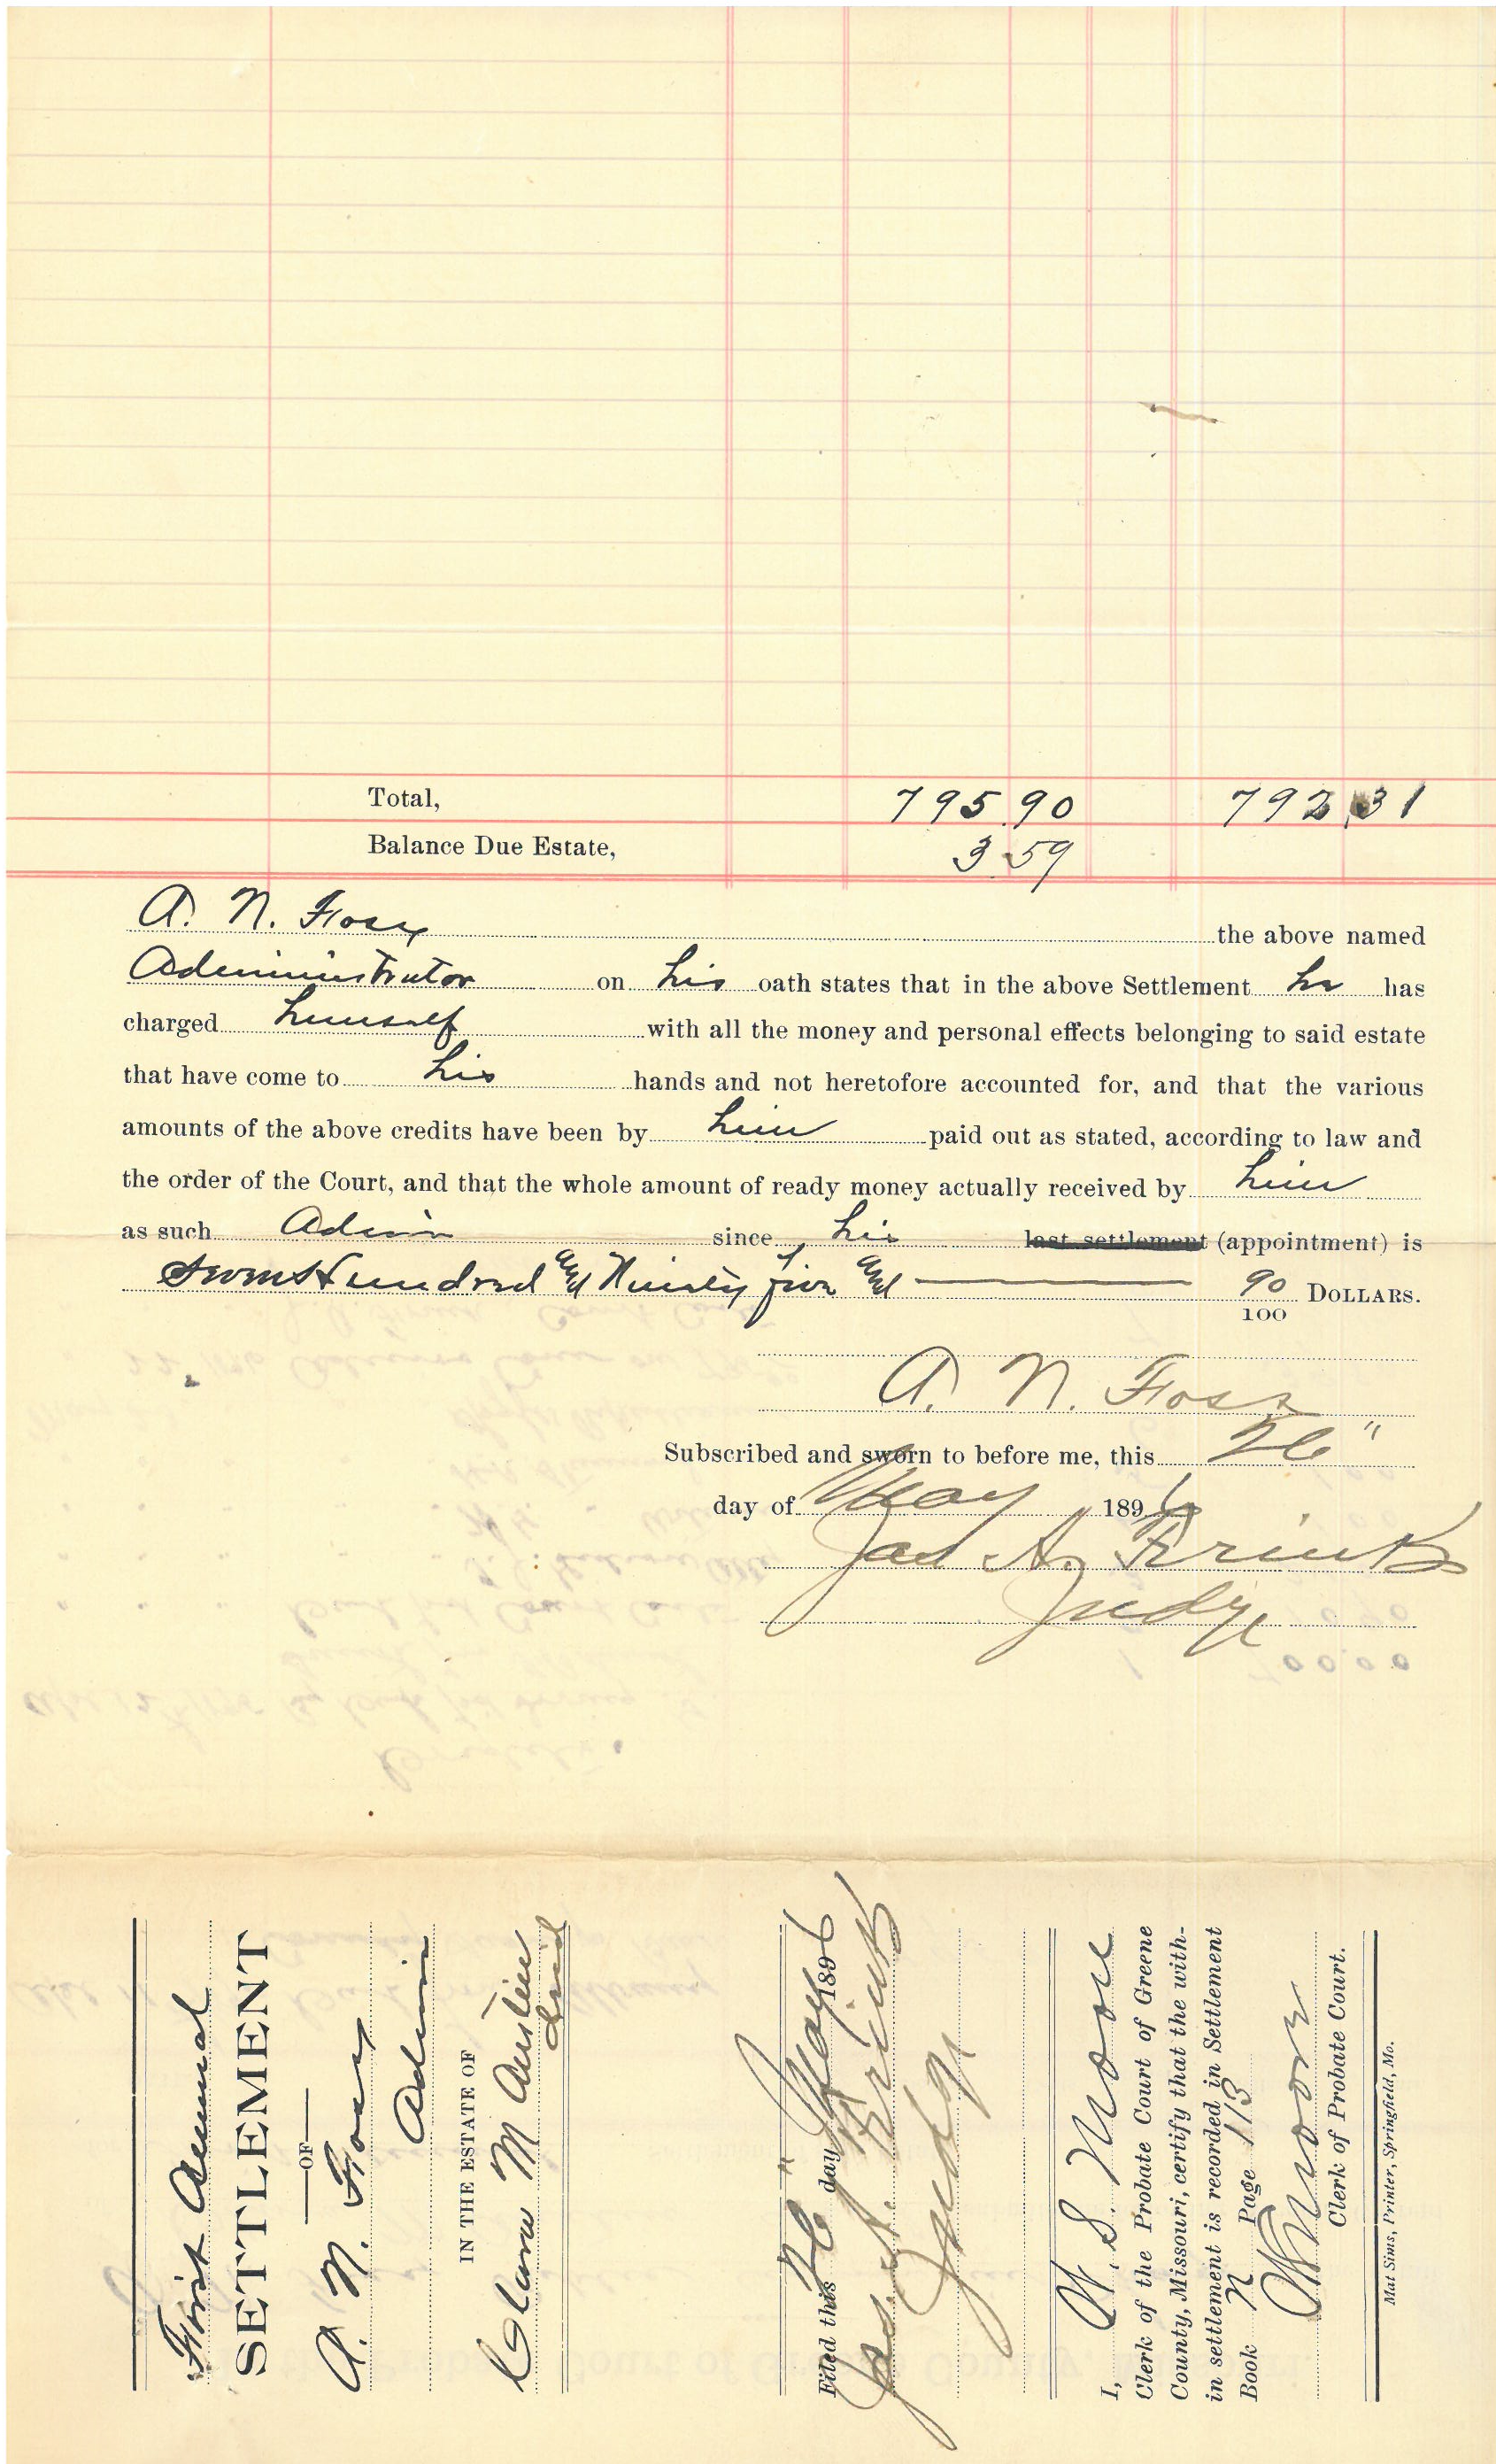 Total, 795 90 792 31
Balance Due Estate, 3 59
A. N. Foss the above named
Administrator on his oath states that in the above Settlement he has
charged himself with all the money and personal effects belonging to said estate
that have come to his hands and not heretofore accounted for, and that the various
amounts of the above credits have been by him paid out as stated, according to law and
the order of the Court, and that the whole amount of ready money actually received by him
as such Admin since his last settlement (appointment) is
Hundred and Ninety five and 90/100 DOLLARS.
A. N. Foss
Subscribed and sworn to before me, this 26"
day of May 1896
Jas A.
Judge
First Annual
SETTLEMENT
—OF—
A. N. Foss
Admin
IN THE ESTATE OF
Clara M Austin
Filed this 26" day May 1896
Jas. A.
Judge
I, W. S. Moore
Clerk of the Probate Court of Greene
County, Missouri, certify that the with-
in settlement is recorded in Settlement
Book N Page 113
Moore
Clerk of Probate Court.
Mat Sims, Printer, Springfield, Mo.